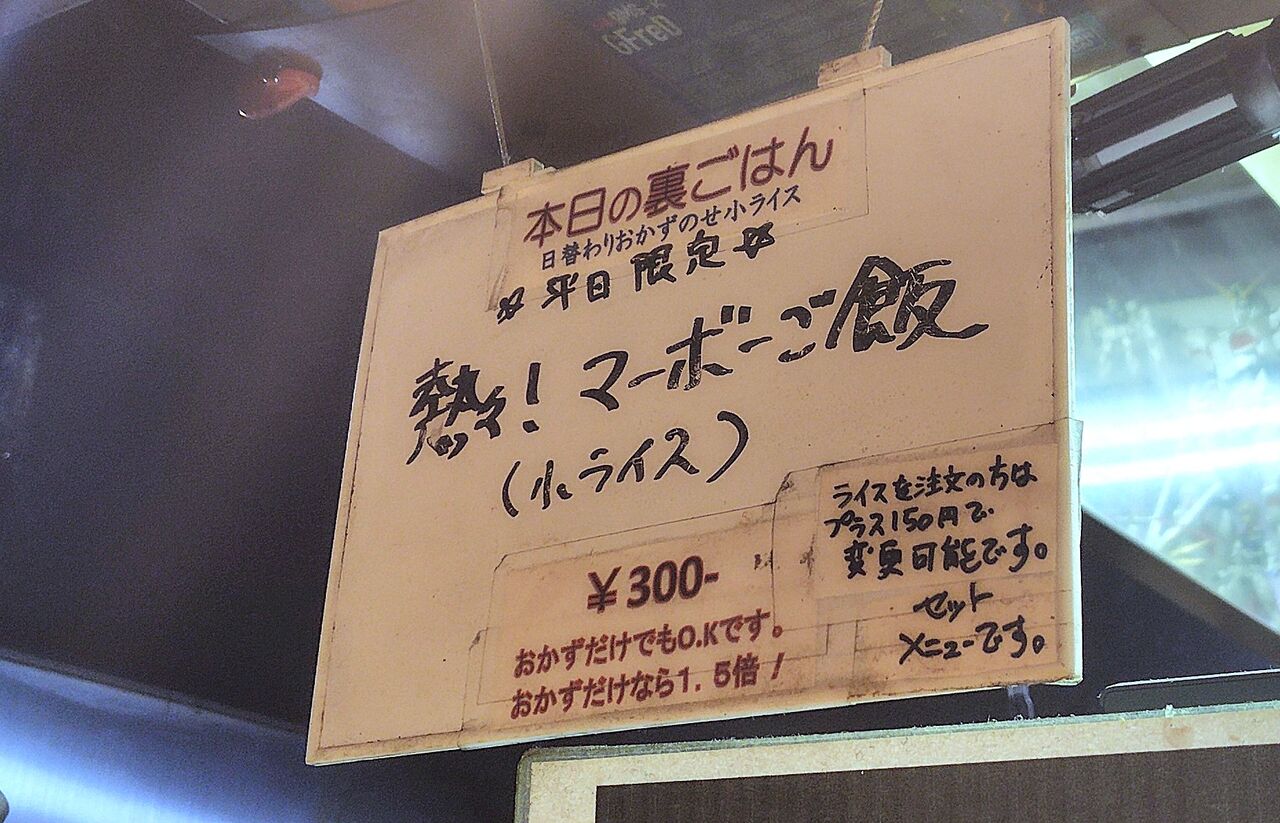 本日の裏ごはん
日替わりおかずのせ小ライス
☆平日限定☆
熱々!マーボーご飯
(小ライス)
ライスを注文の方は
プラス150円で
変更可能です。
セット
メニューです。
¥300-
おかずだけでもO.Kです。
おかずだけなら1.5倍!